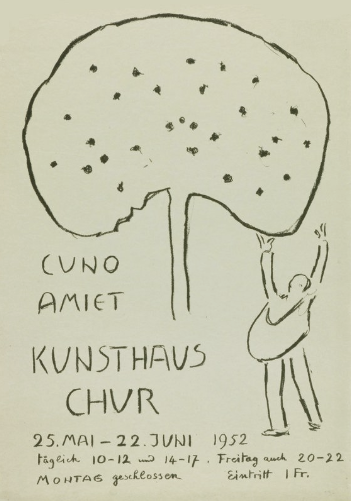 CUNO
AMIET
KUNSTHAUS
CHUR
25. MAI – 22. JUNI 1952
täglich 10-12 und 14-17. Freitag auch 20-22
MONTAG geschlossen Eintritt 1 Fr.